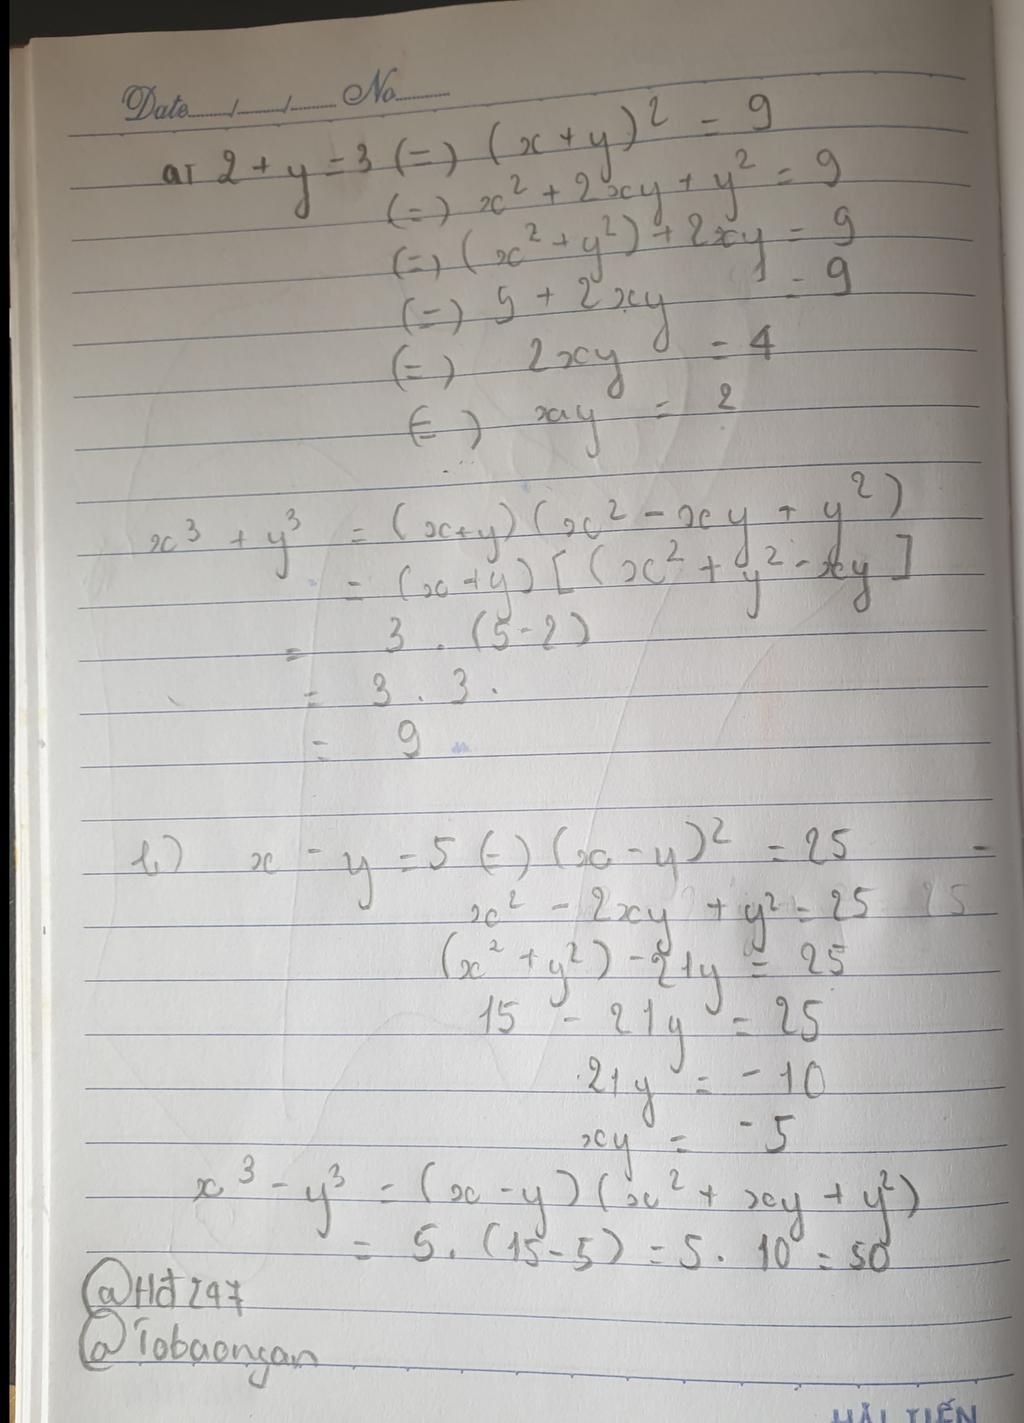 Date...../...../....... No..........
a, 2 + y = 3 (=) (x + y)² = 9
(=) x² + 2xy + y² = 9
(=) (x² + y²) + 2xy = 9
(=) 5 + 2xy = 9
(=) 2xy = 4
(=) xy = 2
x³ + y³ = (x+y) (x² - xy + y²)
= (x + y) [(x² + y² - xy]
= 3 . (5 - 2)
= 3 . 3 .
= 9
b) x - y = 5 (=) (x - y)² = 25
x² - 2xy + y² = 25
(x² + y²) - 2xy = 25
15 - 2xy = 25
2xy = -10
xy = -5
x³ - y³ = (x - y) (x² + xy + y²)
= 5. (15 - 5) = 5 . 10 = 50
@Hđ247
@Tobaongan
HẢI TIẾN